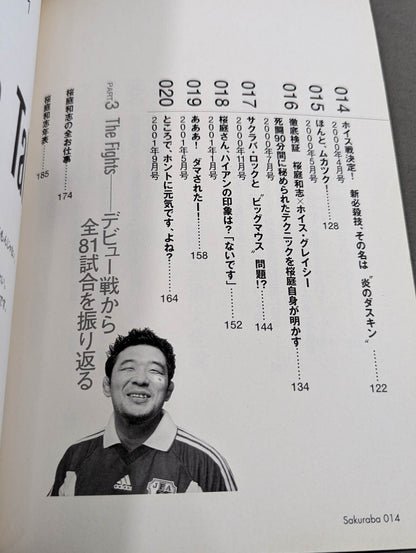 014
ホイス戦決定! 新必殺技、その名は“炎のダスキン”……122
2000年4月号
015
ほんと、ムカツク!……128
2000年5月号
016
徹底検証 桜庭和志×ホイス・グレイシー
死闘90分間に秘められたテクニックを桜庭自身が明かす……134
2000年7月号
017
サクラバ・ロックと“ビッグマウス”問題!?……144
2000年11月号
018
桜庭さん、ハイアンの印象は?「ないです」……152
2001年1月号
019
あああ! ダマされたー!……158
2001年5月号
020
ところで、ホントに元気です、よね?……164
2001年9月号
PART3 The Fights——デビュー戦から
全81試合を振り返る
桜庭和志の全お仕事……174
桜庭和志年表……185
adidas
JFA
Sakuraba 014